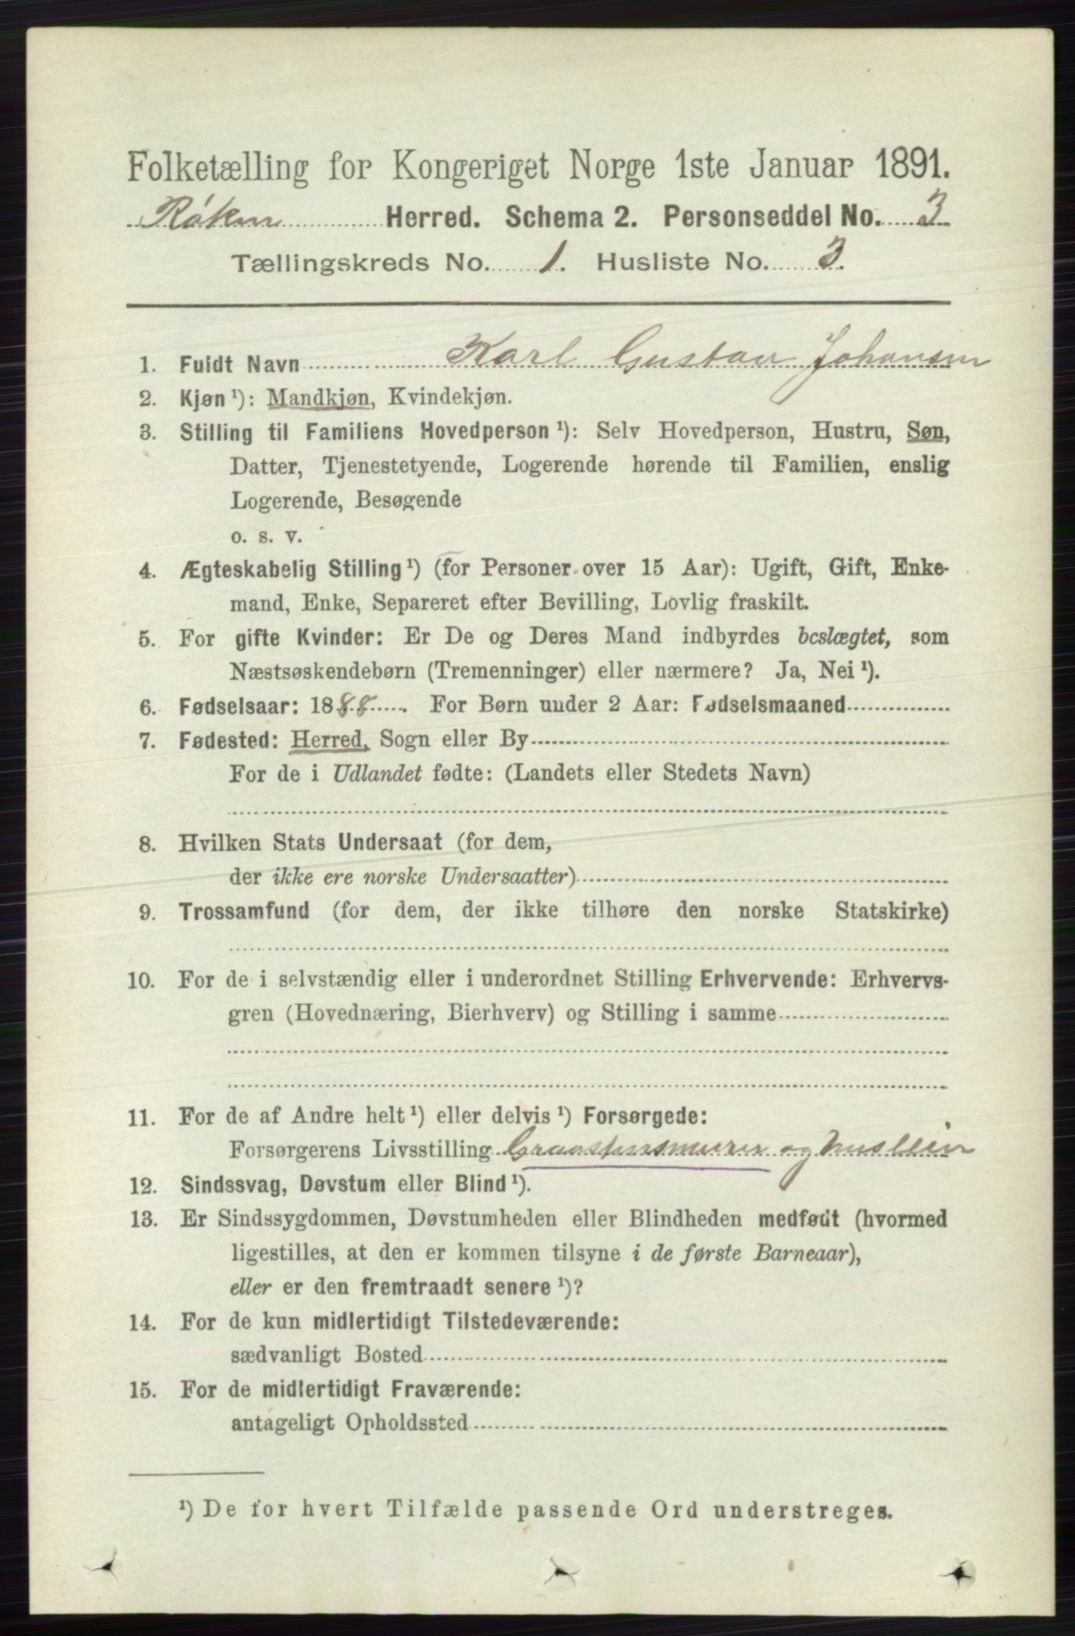 Folketælling for Kongeriget Norge 1ste Januar 1891.
Røken Herred. Schema 2. Personseddel No. 3
Tællingskreds No. 1. Husliste No. 3.
1. Fuldt Navn Karl Gustav Johansen
2. Kjøn ¹): Mandkjøn, Kvindekjøn.
3. Stilling til Familiens Hovedperson ¹): Selv Hovedperson, Hustru, Søn,
Datter, Tjenestetyende, Logerende hørende til Familien, enslig
Logerende, Besøgende
o. s. v.
4. Ægteskabelig Stilling ¹) (for Personer over 15 Aar): Ugift, Gift, Enke-
mand, Enke, Separeret efter Bevilling, Lovlig fraskilt.
5. For gifte Kvinder: Er De og Deres Mand indbyrdes beslægtet, som
Næstsøskendebørn (Tremenninger) eller nærmere? Ja, Nei ¹).
6. Fødselsaar: 1888. For Børn under 2 Aar: Fødselsmaaned
7. Fødested: Herred, Sogn eller By
For de i Udlandet fødte: (Landets eller Stedets Navn)
8. Hvilken Stats Undersaat (for dem,
der ikke ere norske Undersaatter)
9. Trossamfund (for dem, der ikke tilhøre den norske Statskirke)
10. For de i selvstændig eller i underordnet Stilling Erhvervende: Erhvervs-
gren (Hovednæring, Bierhverv) og Stilling i samme
11. For de af Andre helt ¹) eller delvis ¹) Forsørgede:
Forsørgerens Livsstilling Graastensmurer og husleier
12. Sindssvag, Døvstum eller Blind ¹).
13. Er Sindssygdommen, Døvstumheden eller Blindheden medfødt (hvormed
ligestilles, at den er kommen tilsyne i de første Barneaar),
eller er den fremtraadt senere ¹)?
14. For de kun midlertidigt Tilstedeværende:
sædvanligt Bosted
15. For de midlertidigt Fraværende:
antageligt Opholdssted
¹) De for hvert Tilfælde passende Ord understreges.